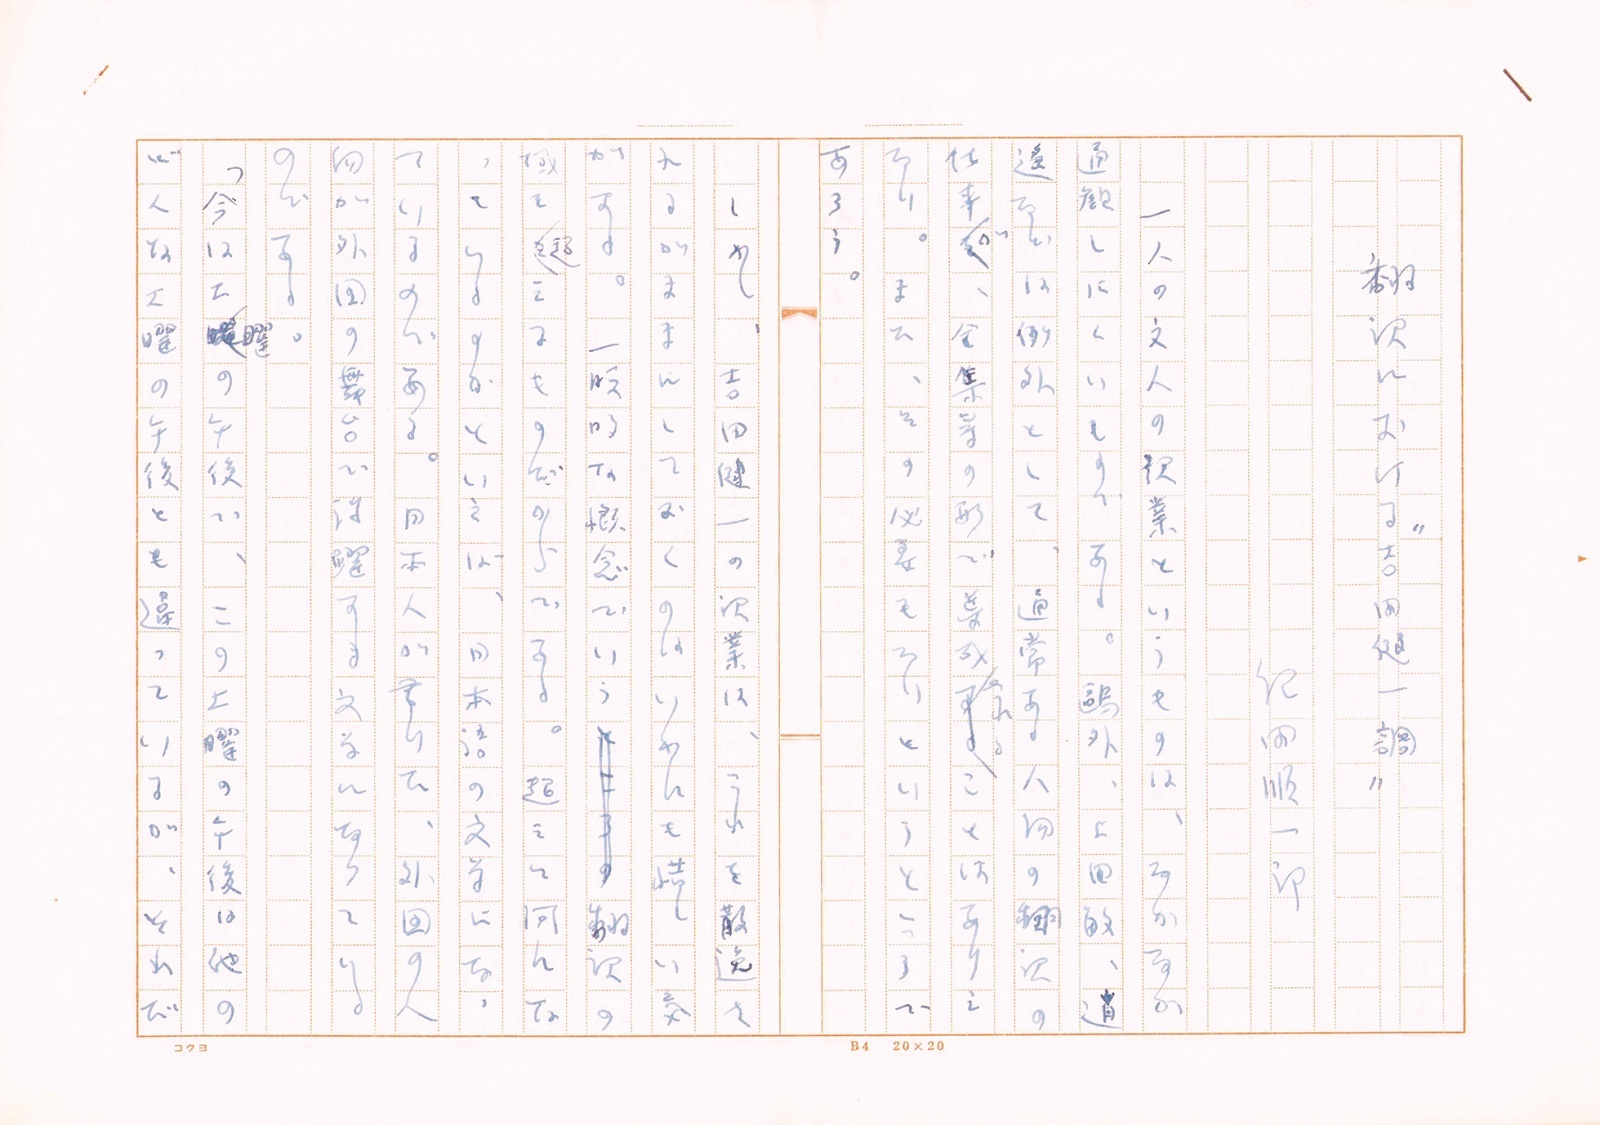 翻訳における"吉田健一調"
紀田順一郎
一人の文人の訳業というものは、なかなか
通観しにくいものである。鷗外、上田敏、逍
遙などは例外として、通常ある人物の翻訳の
仕事が、全集等の形で集成されることはありえ
ない。また、その必要もないというところで
あろう。
しかし、吉田健一の訳業は、これを散逸さ
れるがままにしておくのはいかにも惜しい気
がする。一般的な概念でいう翻訳の
域を超えるものだからである。超えて何にな
っているのかといえば、日本語の文学にな
っているのである。日本人が書いた、外国の人
物が外国の舞台で活躍する文学になっている
のである。
「今は土曜の午後で、この土曜の午後は他の
どんな土曜の午後とも違っているが、それだ
コクヨ
B4 20×20